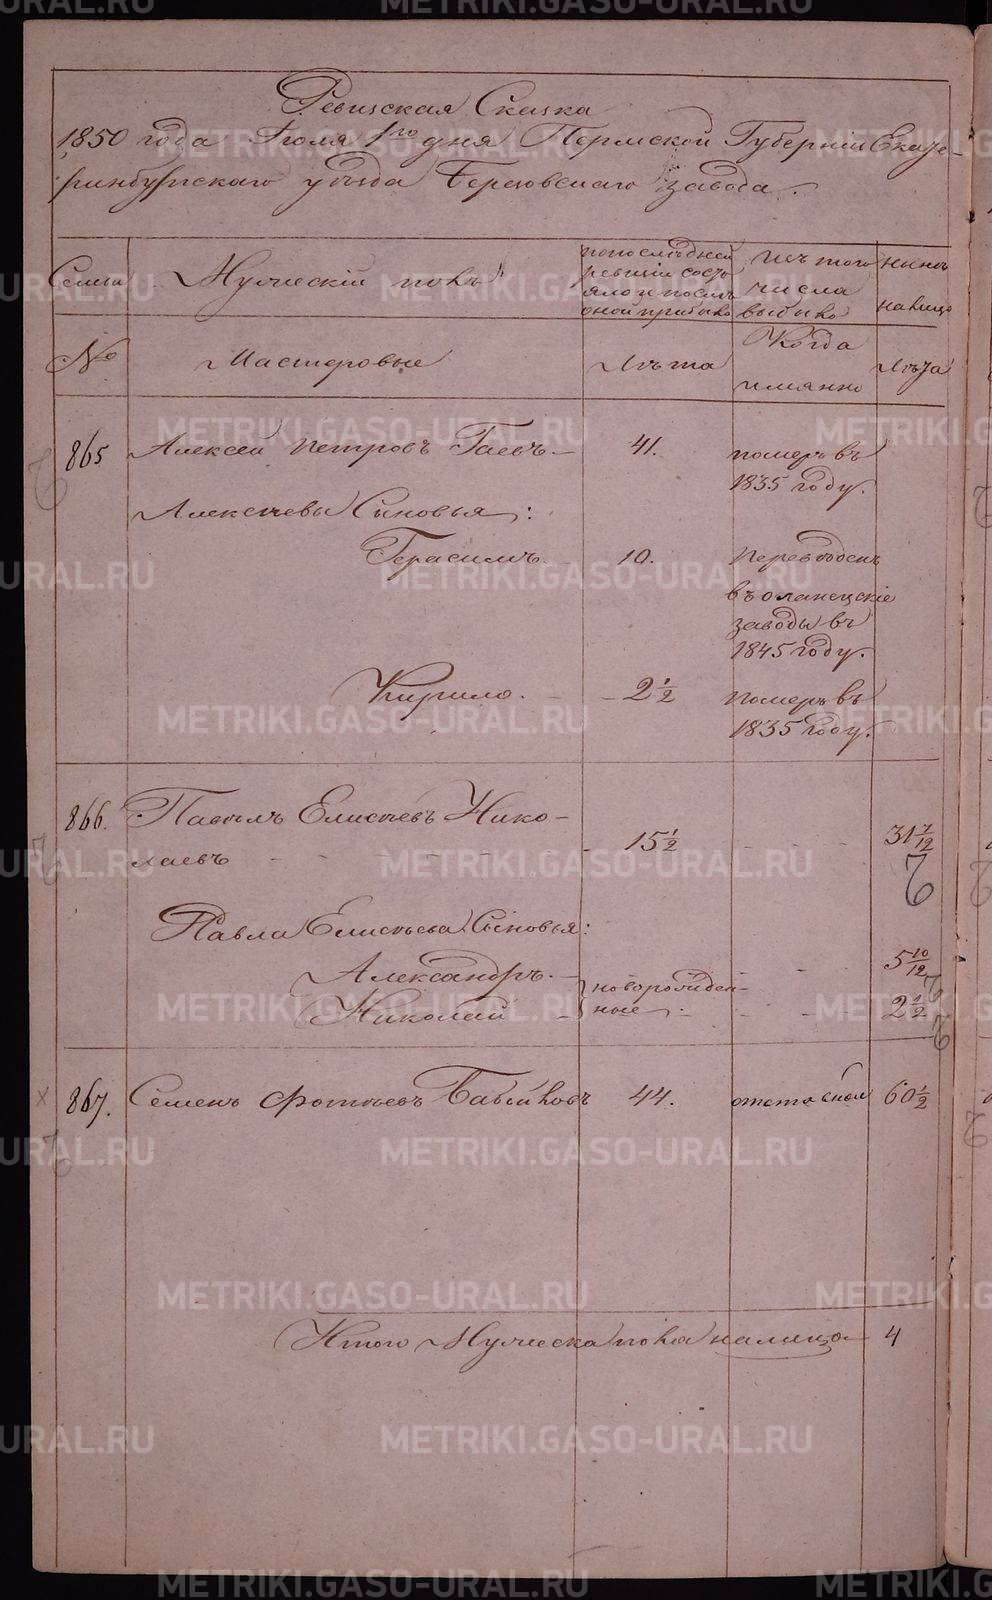 Ревизская Сказка
1850 года Июля 1го дня Пермской Губернiи Екате-
ринбургскаго уѣзда Березовскаго завода.
Семьи
Мужескiй полъ
попослѣдней
ревизiи сост
ояло и послѣ
оной прибыло
Изъ того
числа
выбыло
Нынѣ
налицо
№
Мастеровые
Лѣта
Когда
имянно
Лѣта
865
Алексей Петровъ Гаевъ
41.
померъ въ
1835 году.
Алексѣевы Сыновья:
Герасимъ
10.
Переведенъ
въ оланецскiе
заводы въ
1845 году.
Кирило.
2 1/2
померъ въ
1835 году.
866.
Павелъ Елисѣевъ Нико-
лаевъ
15 1/2
31 7/12
Павла Елисѣева Сыновья:
Александръ
Николай
новорожден-
ные
5 10/12
2 1/2
867.
Семенъ Фотѣевъ Бабиковъ
44.
отставной
60 1/2
Итого Мужеска пола налицо
4
METRIKI.GASO-URAL.RU